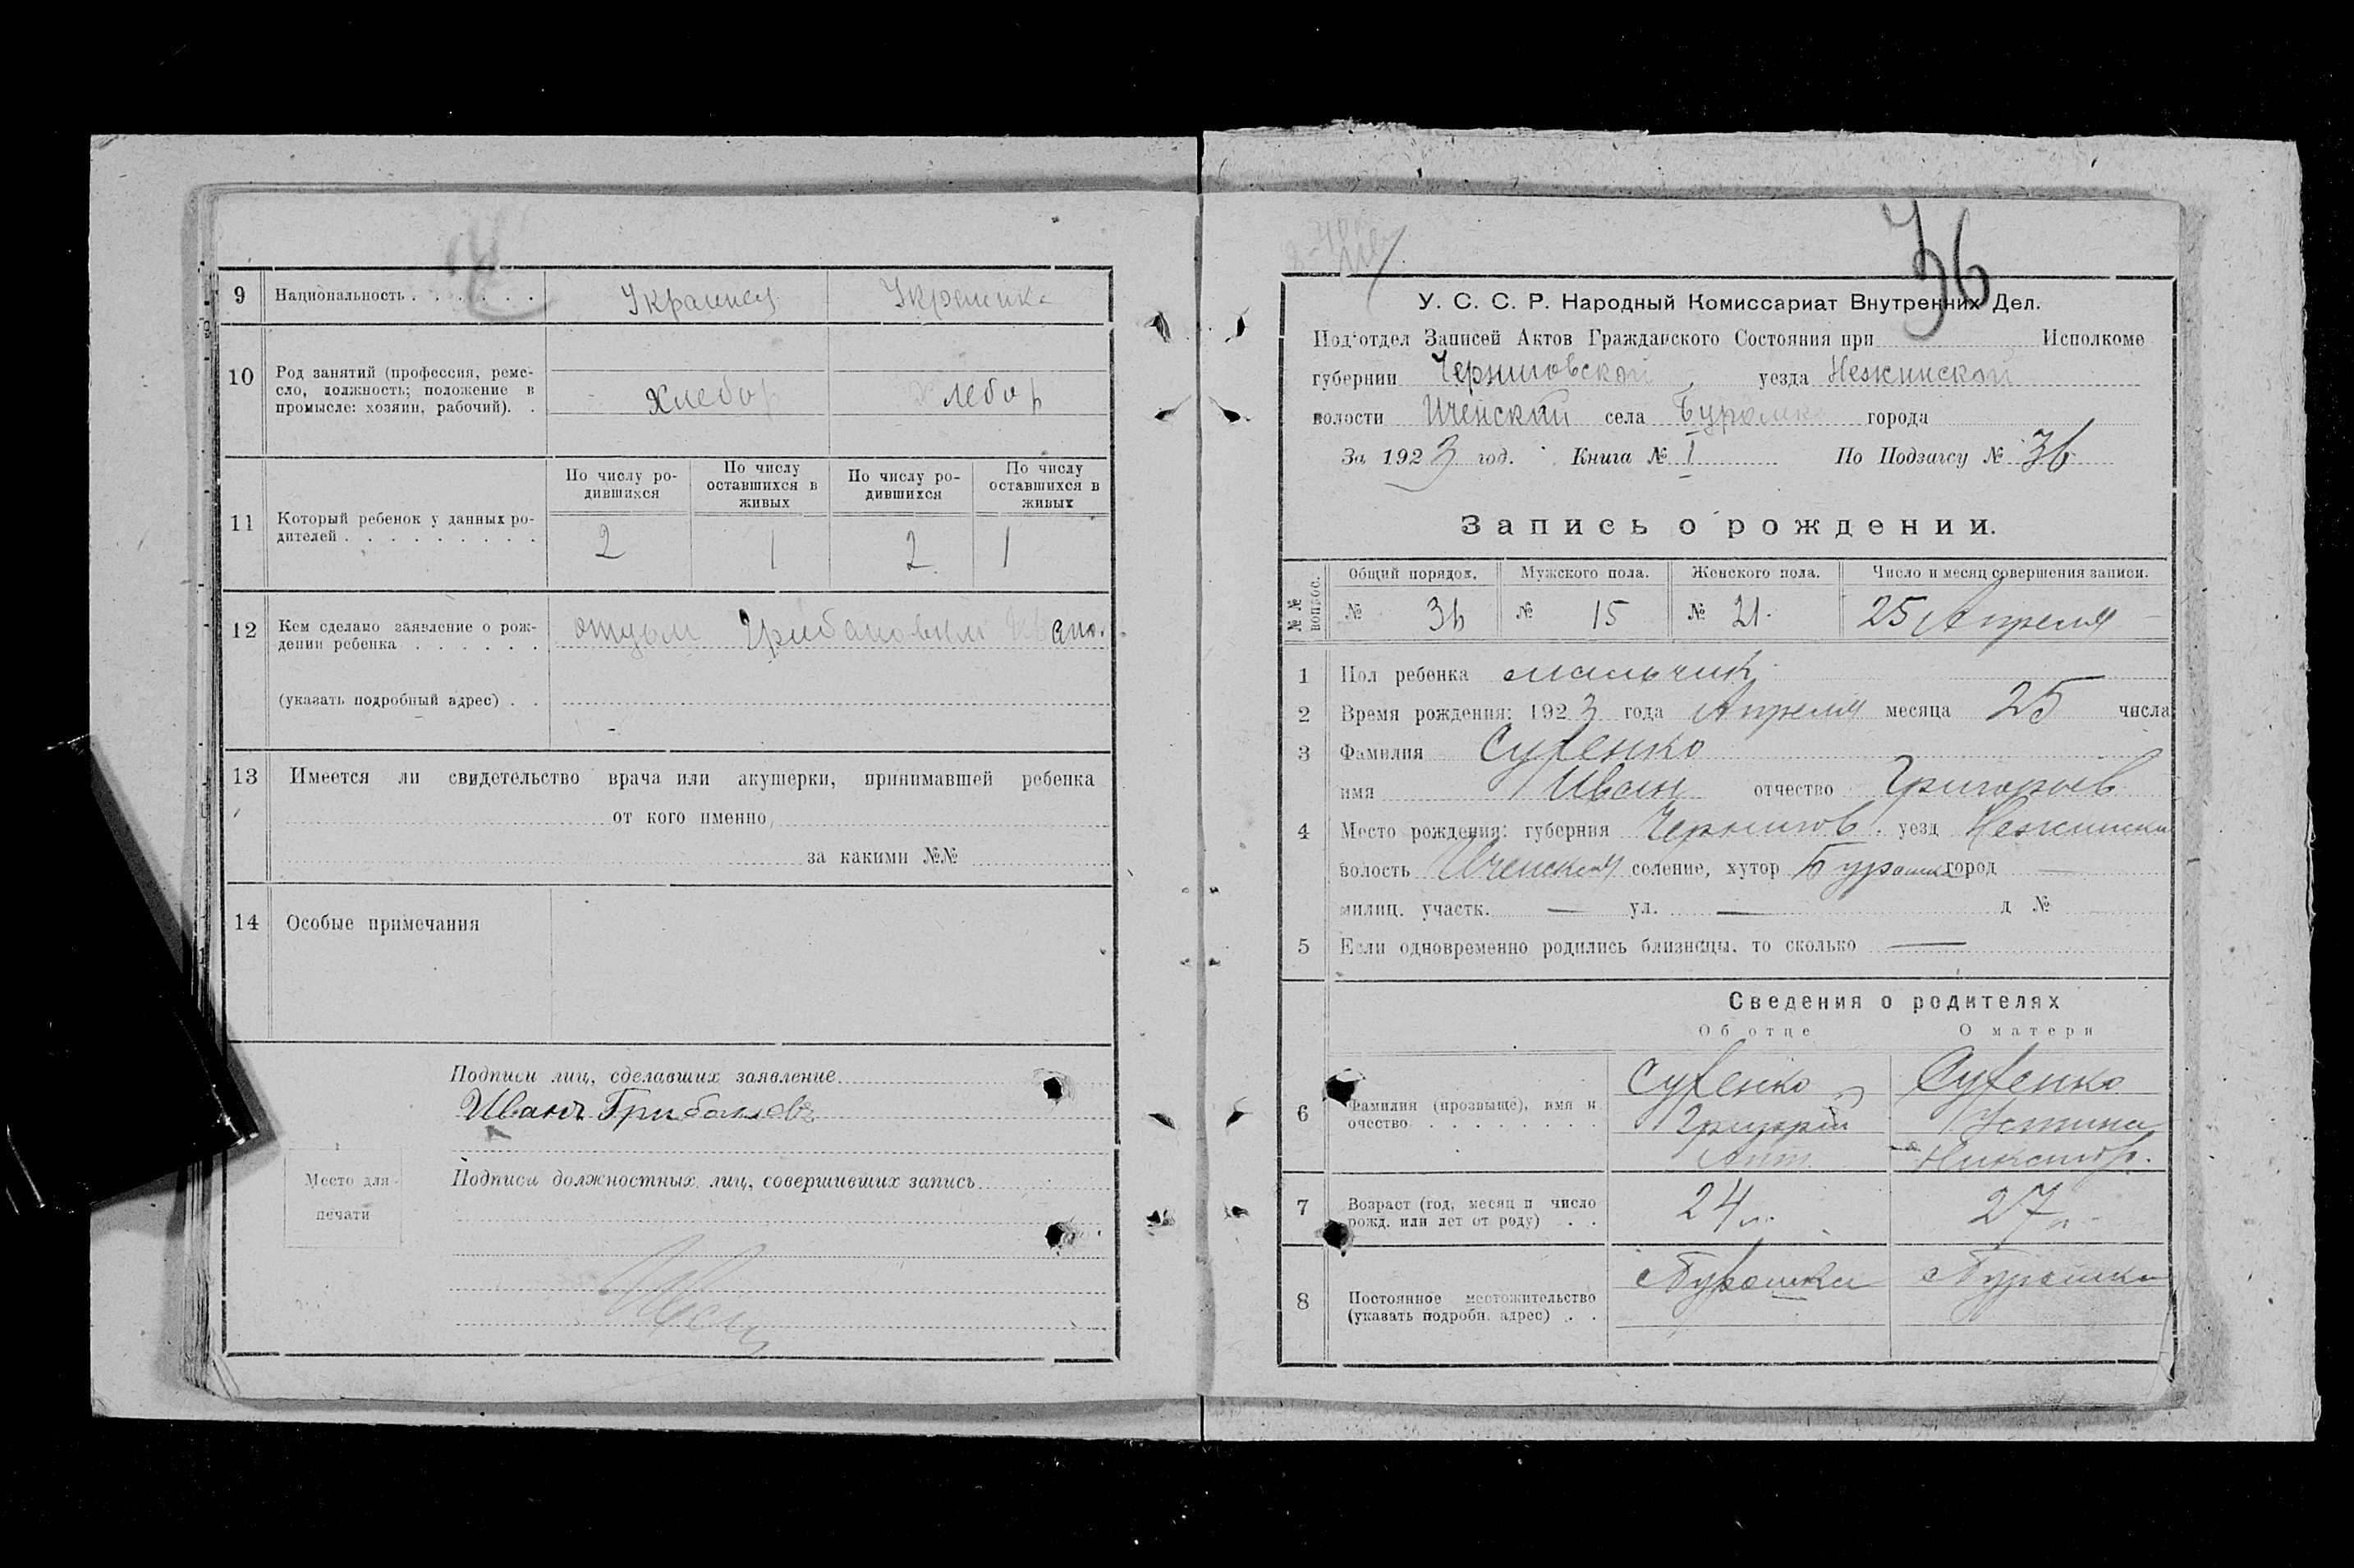 9 Национальность . . . . . . Украинец Украинка
10 Род занятий (профессия, реме-
сло, должность; положение в
промысле: хозяин, рабочий). . Хлебор Хлебор
11 Который ребенок у данных ро-
дителей . . . . . . . . .
По числу ро-
дившихся
По числу
оставшихся в
живых
По числу ро-
дившихся
По числу
оставшихся в
живых
2 1 2 1
12 Кем сделано заявление о рож-
дении ребенка . . . . . . отцом Грибановым Ивано.
(указать подробный адрес) . .
13 Имеется ли свидетельство врача или акушерки, принимавшей ребенка
от кого именно
за какими №№
14 Особые примечания
Подписи лиц, сделавших заявление
Иванъ Грибановъ
Место для
печати
Подписи должностных лиц, совершивших запись
36
У. С. С. Р. Народный Комиссариат Внутренних Дел.
Под'отдел Записей Актов Гражданского Состояния при Исполкоме
губернии Черниговской уезда Нежинской
волости Иченской села Буромка города
За 1923 год. Книга № I По Подзагсу № 36
Запись о рождении.
№№ вопрос.
Общий порядок. Мужского пола. Женского пола. Число и месяц совершения записи.
№ 36 № 15 № 21. 25 Апреля
1 Пол ребенка мальчик
2 Время рождения: 1923 года Апреля месяца 25 числа
3 Фамилия Сухенко
имя Иван отчество Григорьев
4 Место рождения: губерния Чернигов. уезд Нежински
волость Иченская селение, хутор Буромка город —
милиц. участк. — ул. — д №
5 Если одновременно родились близнецы. то сколько —
Сведения о родителях
Об отце О матери
6 Фамилия (прозвище), имя и
очество . . . . . . . .
Сухенко
Григорий
Ант.
Сухенко
Устина
Никанор.
7 Возраст (год, месяц и число
рожд. или лет от роду) . . 24 л. 27 л.
8 Постоянное местожительство
(указать подробн. адрес) . . с Буромка с Буромка